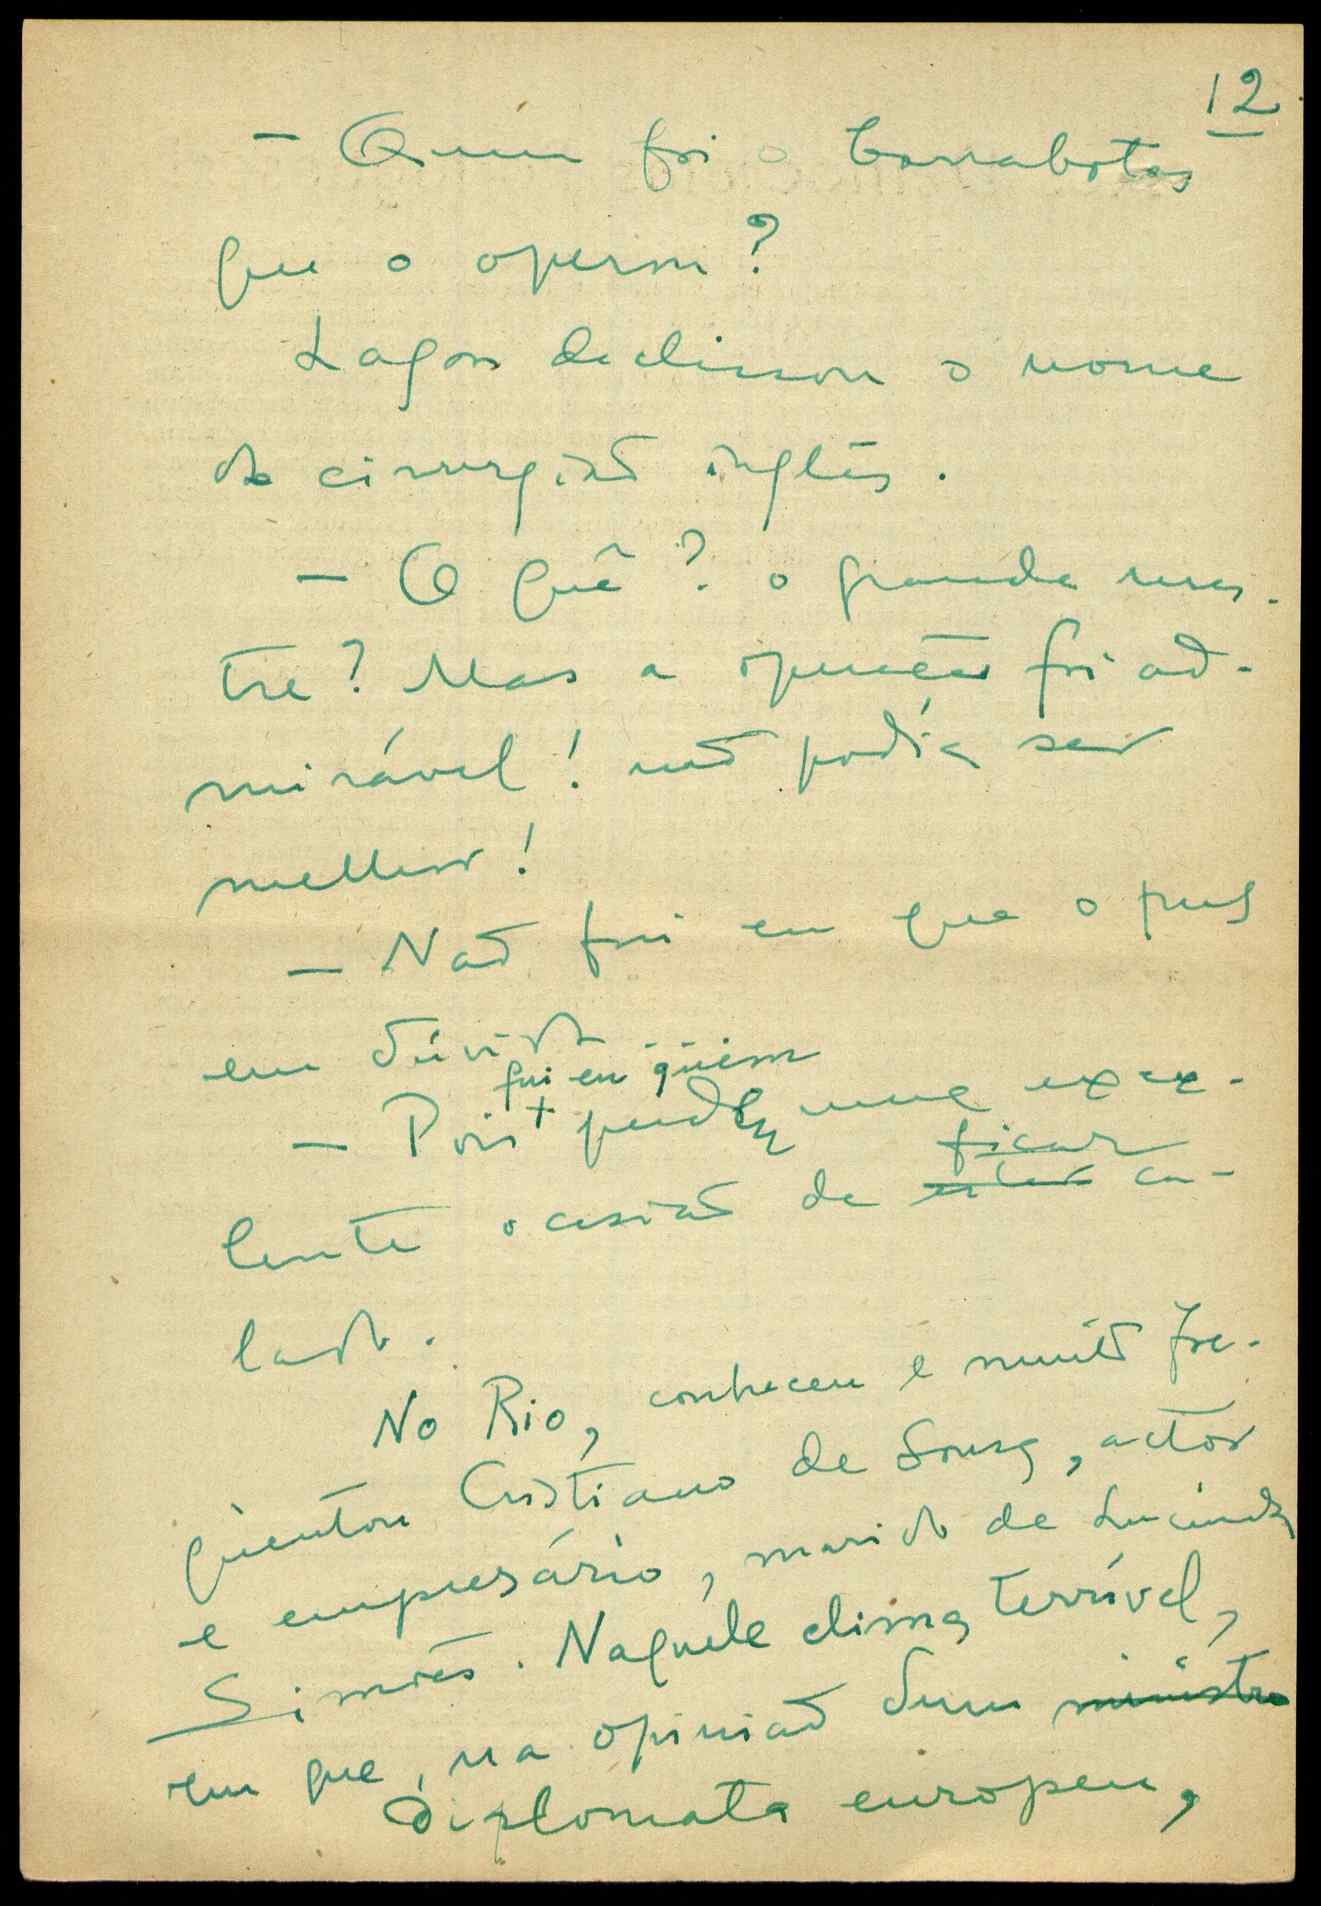 12
— Quem foi o borrabotas
que o operou?
Lagoa declinou o nome
do cirurgião inglês.
— O quê? o grande mes-
tre? Mas a operação foi ad-
mirável! não podia ser
melhor!
— Não fui eu que o pus
em dúvida...
fui eu quem
— Pois + perdeu uma exce-
ficar
lente ocasião de estar ca-
lado.
No Rio, conheceu e muito fre-
qüentou Cristiano de Sousa, actor
e empresário, marido de Lucinda
Simões. Naquele clima terrível,
em que, na opinião dum ministro
diplomata europeu,